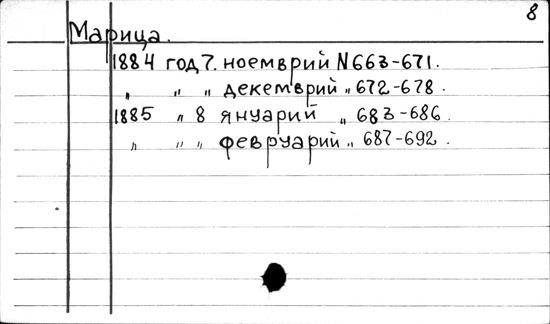 8
Марица.
1884 год 7. ноемврий N 663-671.
" " " декемврий " 672-678.
1885 " 8 януарий " 683-686.
" " " февруарий " 687-692.